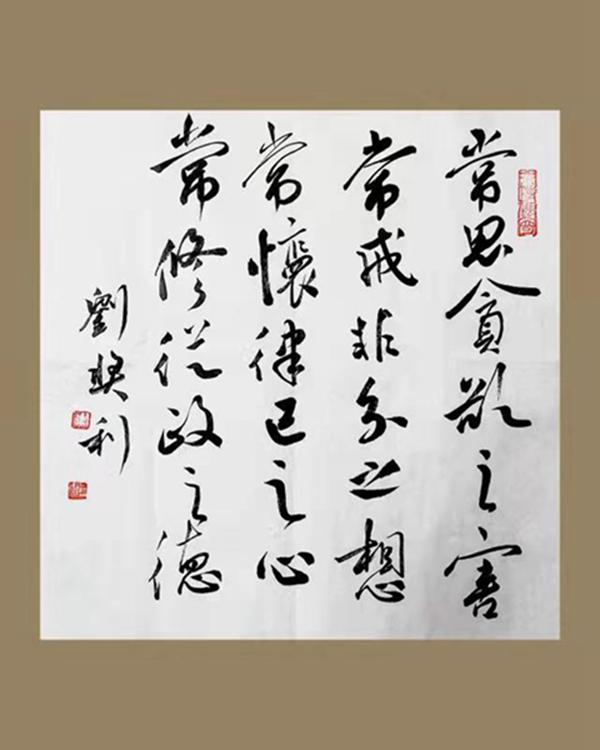 常思貪欲之害
常戒非分之想
常懷律己之心
常修從政之德
劉
利